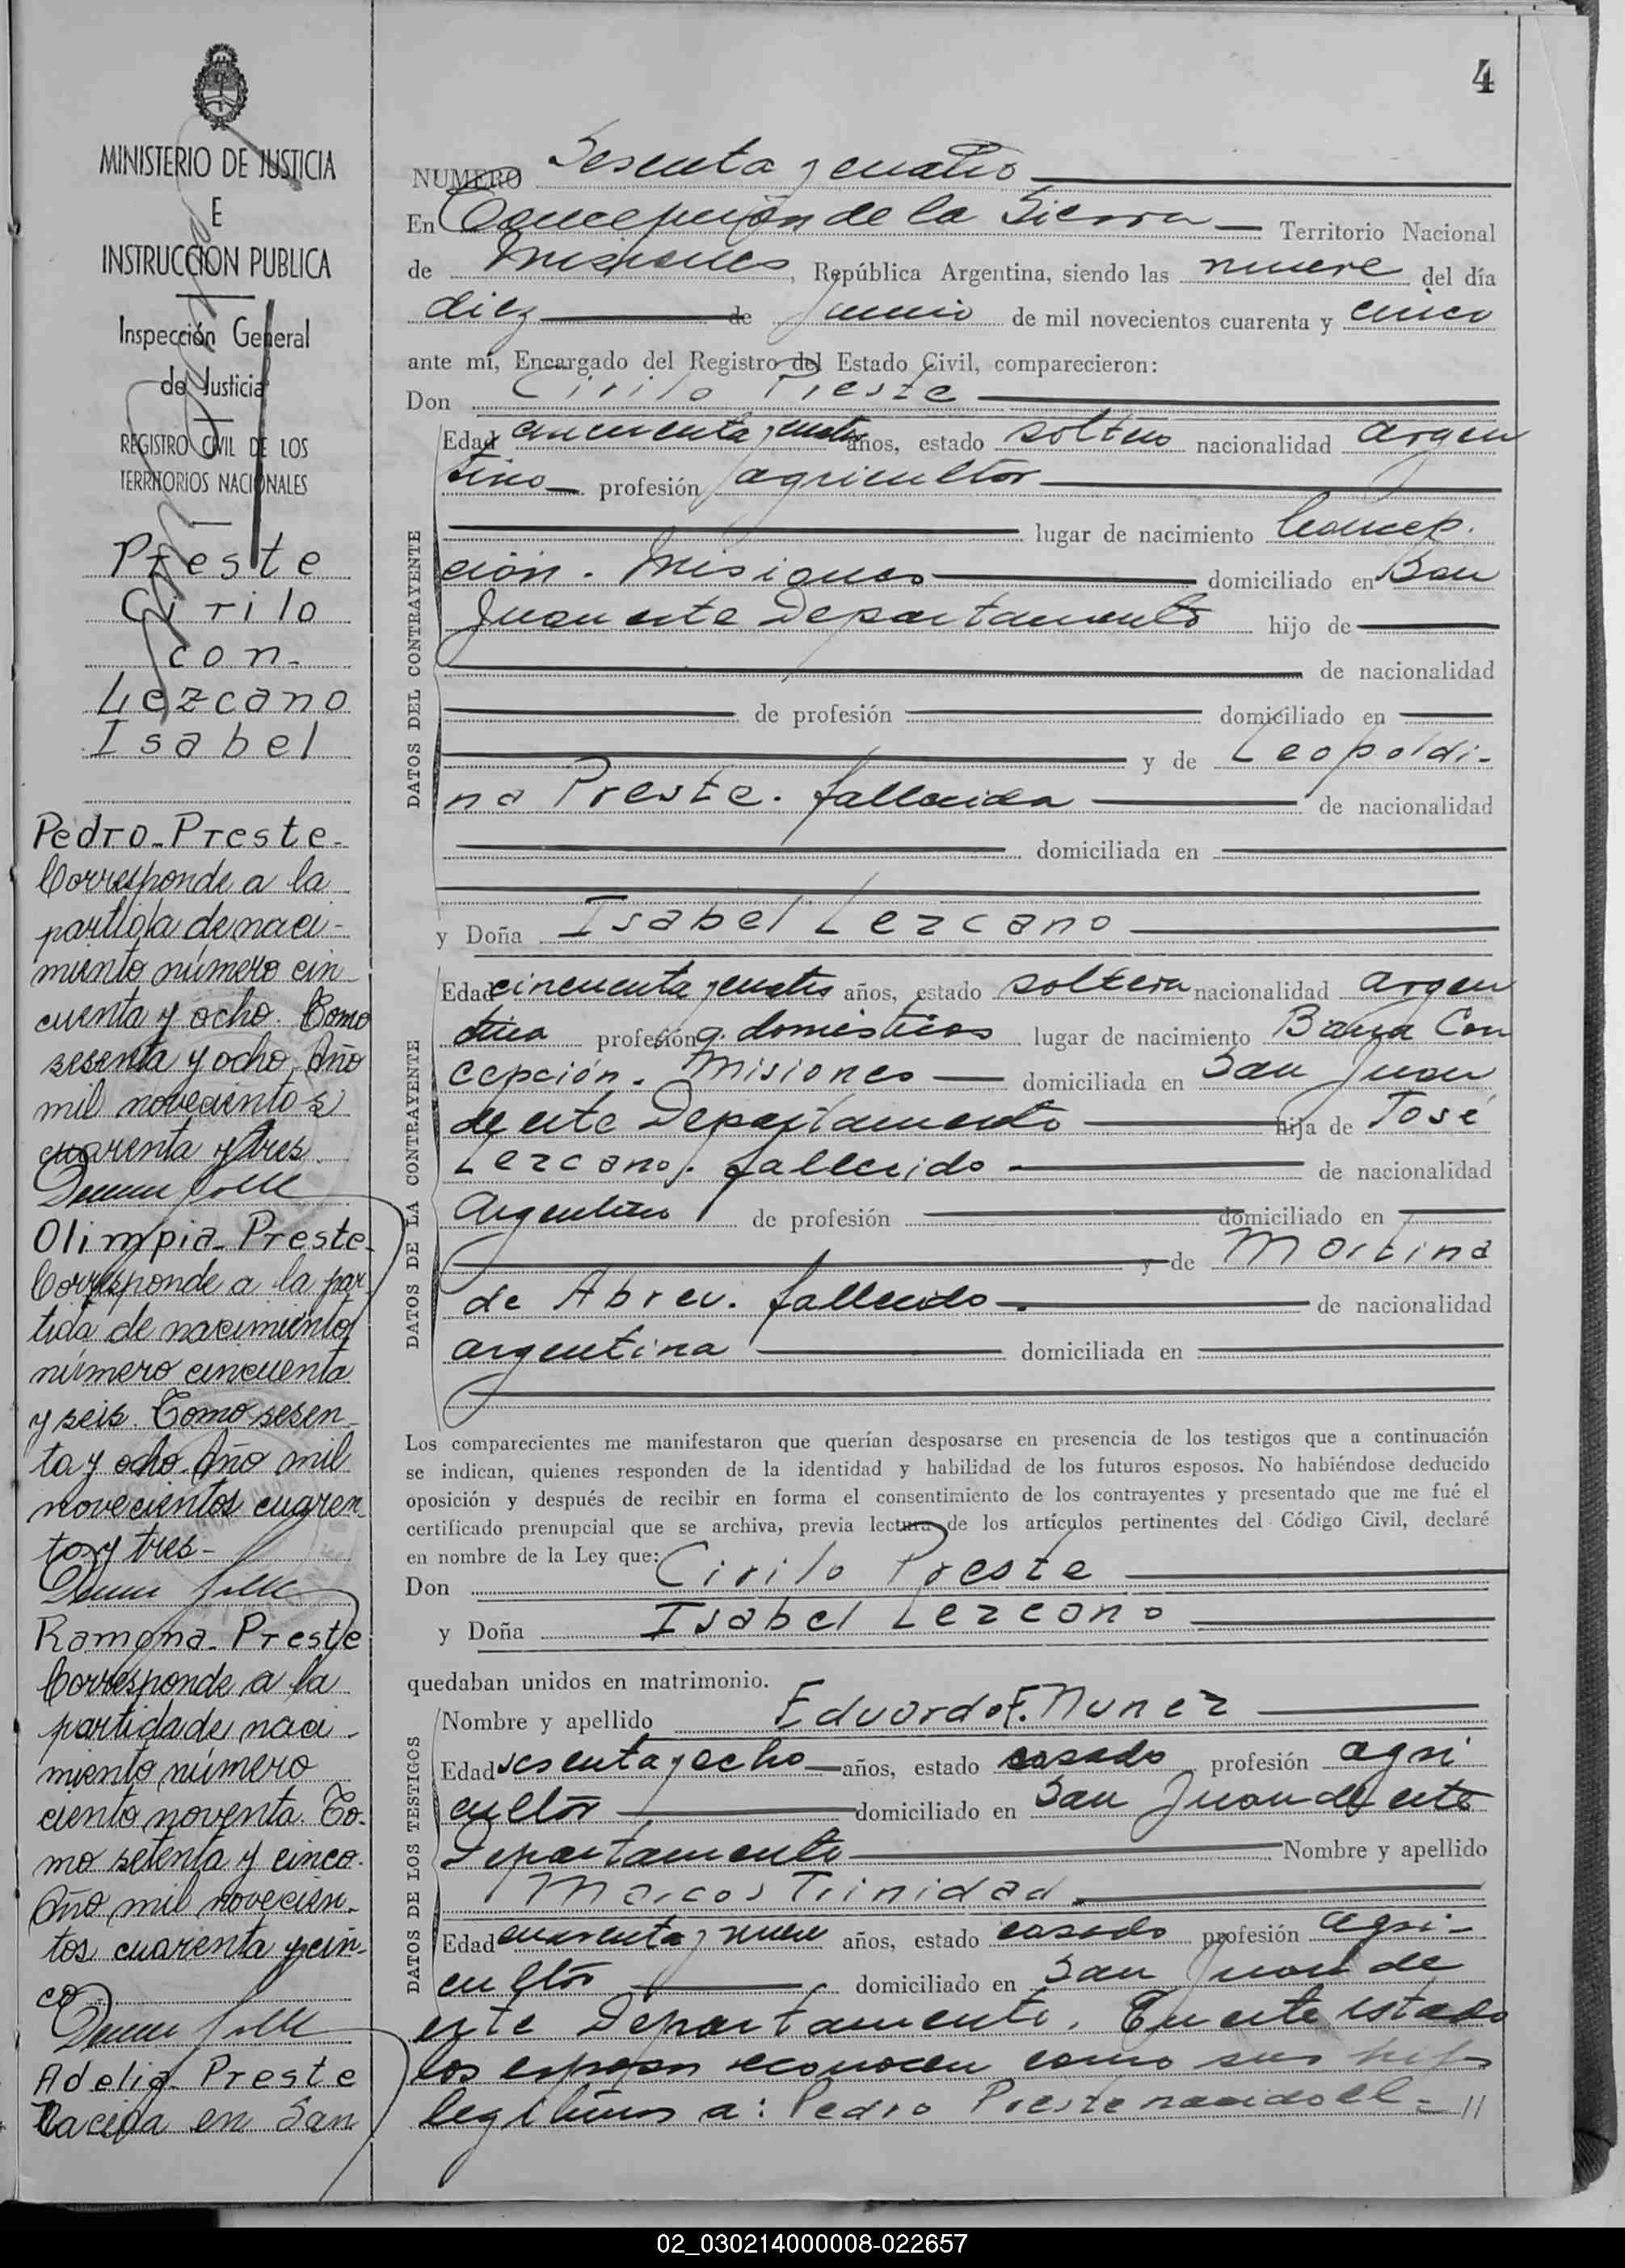 4
MINISTERIO DE JUSTICIA
E
INSTRUCCION PUBLICA
Inspección General
de Justicia
REGISTRO CIVIL DE LOS
TERRITORIOS NACIONALES
Preste
Cirilo
con-
Lezcano
Isabel
Pedro-Preste-
Corresponde a la
partida de naci-
miento número cin
cuenta y ocho. Tomo
sesenta y ocho. Año
mil novecientos
cuarenta y tres
Olimpia-Preste-
Corresponde a la par
tida de nacimiento
número cincuenta
y seis. Tomo sesen-
ta y ocho. Año mil
novecientos cuaren-
ta y tres-
Ramona-Preste
Corresponde a la
partida de naci-
miento número
ciento noventa. To-
mo setenta y cinco.
Año mil novecien-
tos cuarenta y cin-
co
Adelia-Preste
Nacida en San
NUMERO Sesenta y cuatro
En Concepción de la Sierra Territorio Nacional
de Misiones, República Argentina, siendo las nueve del día
diez de Junio de mil novecientos cuarenta y cinco
ante mí, Encargado del Registro del Estado Civil, comparecieron:
Don Cirilo Preste
DATOS DEL CONTRAYENTE
Edad cincuenta y cuatro años, estado soltero nacionalidad argen
tino profesión agricultor
lugar de nacimiento Concep.
ción. Misiones domiciliado en San
Juan este Departamento hijo de
de nacionalidad
de profesión domiciliado en
y de Leopoldi-
na Preste. fallecida de nacionalidad
domiciliada en
y Doña Isabel Lezcano
DATOS DE LA CONTRAYENTE
Edad cincuenta y cuatro años, estado soltera nacionalidad argen
tina profesión q. domésticos lugar de nacimiento Barra Con
cepción. Misiones domiciliada en San Juan
de este Departamento hija de José
Lezcano. fallecido de nacionalidad
Argentino de profesión domiciliado en
y de Martina
de Abreu. fallecido de nacionalidad
argentina domiciliada en
Los comparecientes me manifestaron que querían desposarse en presencia de los testigos que a continuación
se indican, quienes responden de la identidad y habilidad de los futuros esposos. No habiéndose deducido
oposición y después de recibir en forma el consentimiento de los contrayentes y presentado que me fué el
certificado prenupcial que se archiva, previa lectura de los artículos pertinentes del Código Civil, declaré
en nombre de la Ley que:
Don Cirilo Preste
y Doña Isabel Lezcano
quedaban unidos en matrimonio.
DATOS DE LOS TESTIGOS
Nombre y apellido Eduardo F. Nunez
Edad sesenta y ocho años, estado casado profesión agri
cultor domiciliado en San Juan de este
Departamento Nombre y apellido
Marcos Trinidad
Edad cuarenta y nueve años, estado casado profesión agri-
cultor domiciliado en San Juan de
este Departamento. En este estado
los esposos reconocen como sus hijos
legítimos a: Pedro Preste nacido el = //
02_030214000008-022657